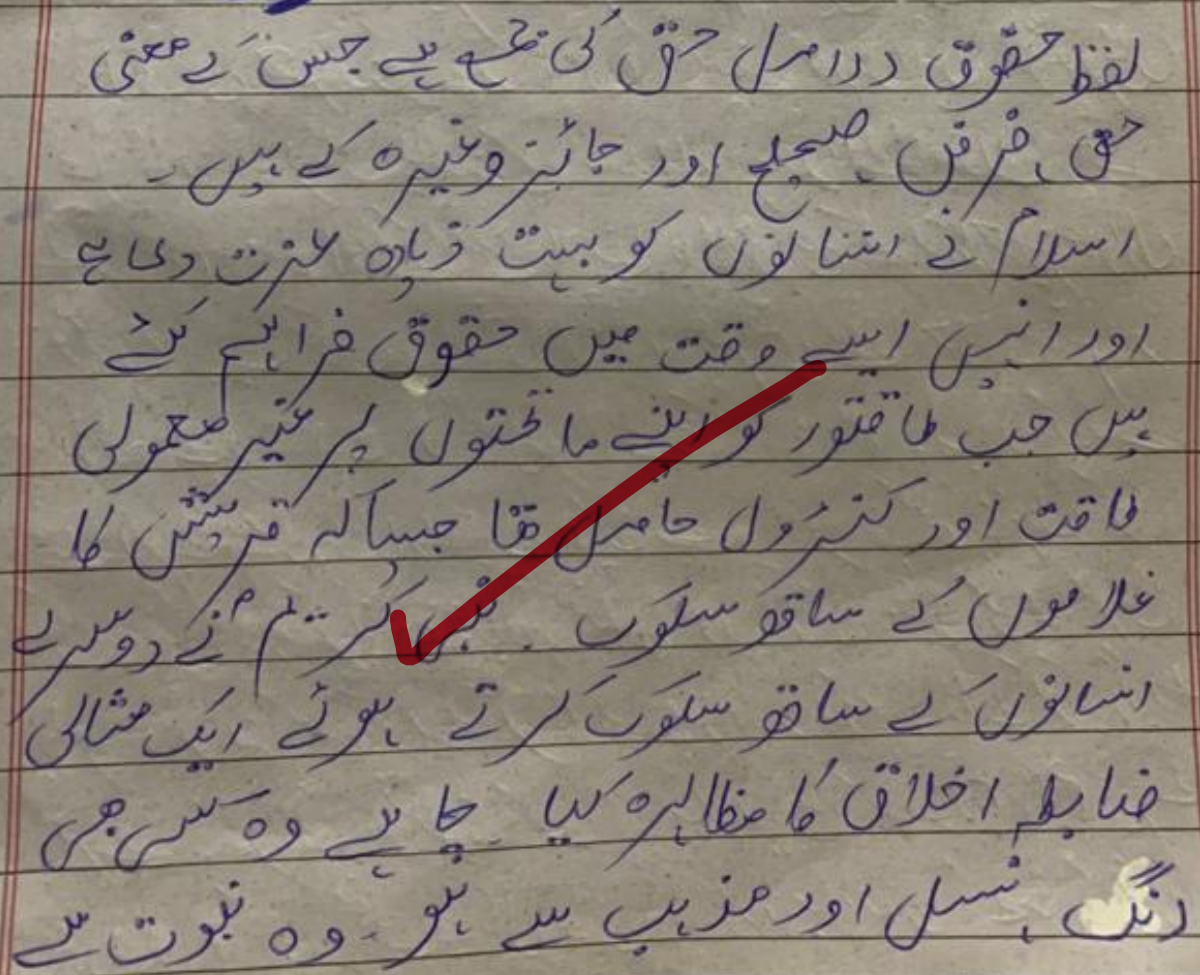 لفظ حقوق دراصل حق کی جمع ہے جس کے معنی
حق ، فرض ، صحیح اور جائز وغیرہ کے ہیں ۔
اسلام نے انسانوں کو بہت زیادہ عزت دی ہے
اور انہیں ایسے وقت میں حقوق فراہم کئے
ہیں جب طاقتور کو اپنے ماتحتوں پر غیر معمولی
طاقت اور کنٹرول حاصل تھا جیسا کہ قریش کا
غلاموں کے ساتھ سلوک ۔ نبی کریم ؐ نے دوسرے
انسانوں کے ساتھ سلوک کرتے ہوئے ایک مثالی
ضابطہ اخلاق کا مظاہرہ کیا چاہیے وہ کسی بھی
رنگ ، نسل اور مذہب سے ہو ۔ وہ نبوت سے